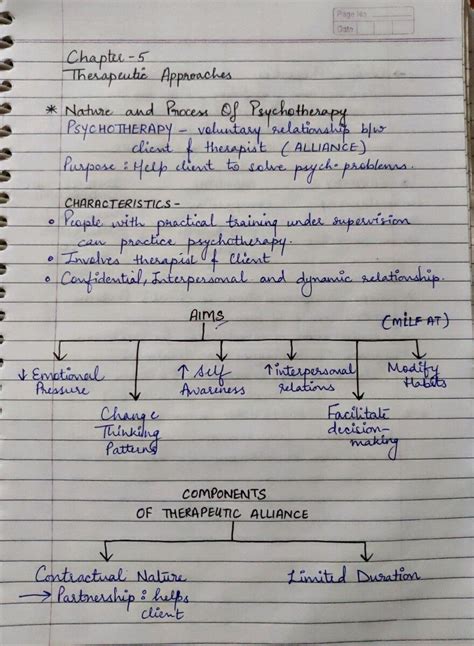 Page No
Date
Chapter - 5
Therapeutic Approaches
* Nature and Process Of Psychotherapy
PSYCHOTHERAPY - voluntary relationship b/w
client & therapist (ALLIANCE)
Purpose : Help client to solve psych. problems.
CHARACTERISTICS -
• People with practical training under supervision
can practice psychotherapy.
• Involves therapist & Client
• Confidential, Interpersonal and dynamic relationship.
AIMS
(MILF AT)
↓ Emotional ↑ Self ↑ interpersonal Modify
Pressure Awareness relations Habits
Change Facilitate
Thinking decision-
Patterns making
COMPONENTS
OF THERAPEUTIC ALLIANCE
Contractual Nature Limited Duration
→ Partnership : helps
client